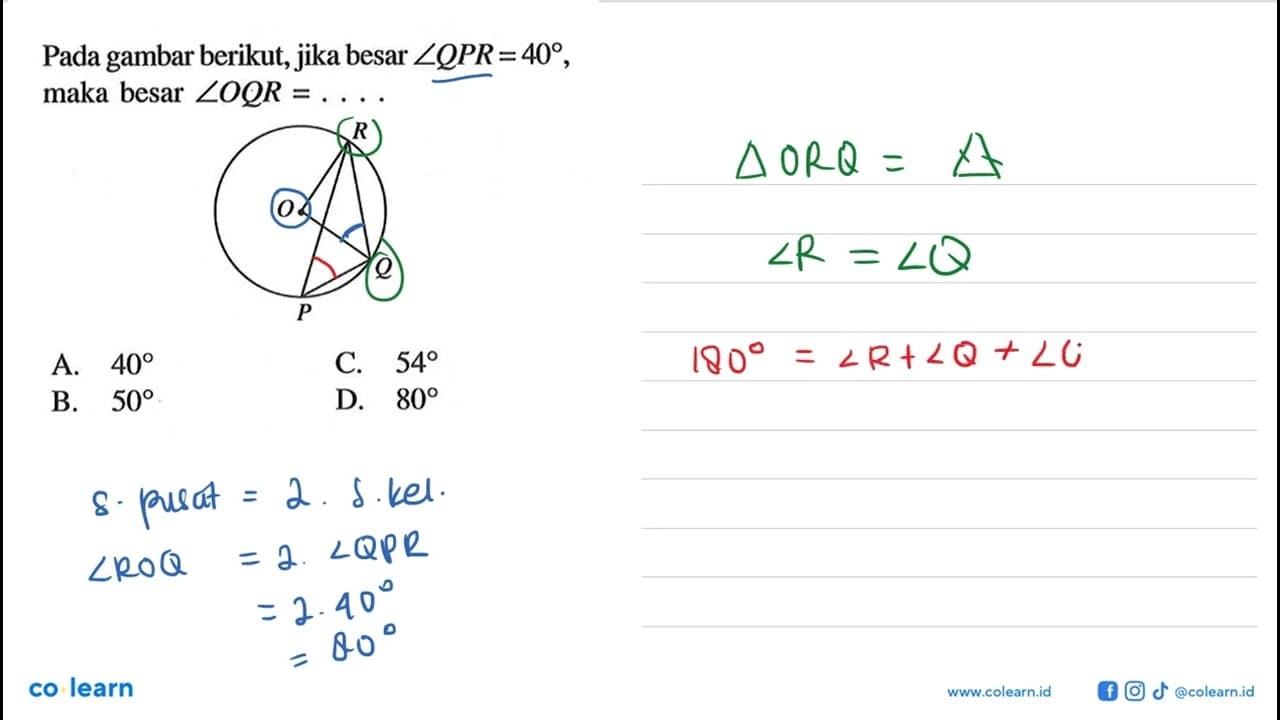 Pada gambar berikut, jika besar ∠QPR = 40°,
maka besar ∠OQR = . . . .
R
O
Q
P
A. 40°
C. 54°
B. 50°
D. 80°
s. pusat = 2. s. kel.
∠ROQ = 2. ∠QPR
= 2. 40°
= 80°
△ORQ = △
∠R = ∠Q
180° = ∠R + ∠Q + ∠
co learn
www.colearn.id
@colearn.id